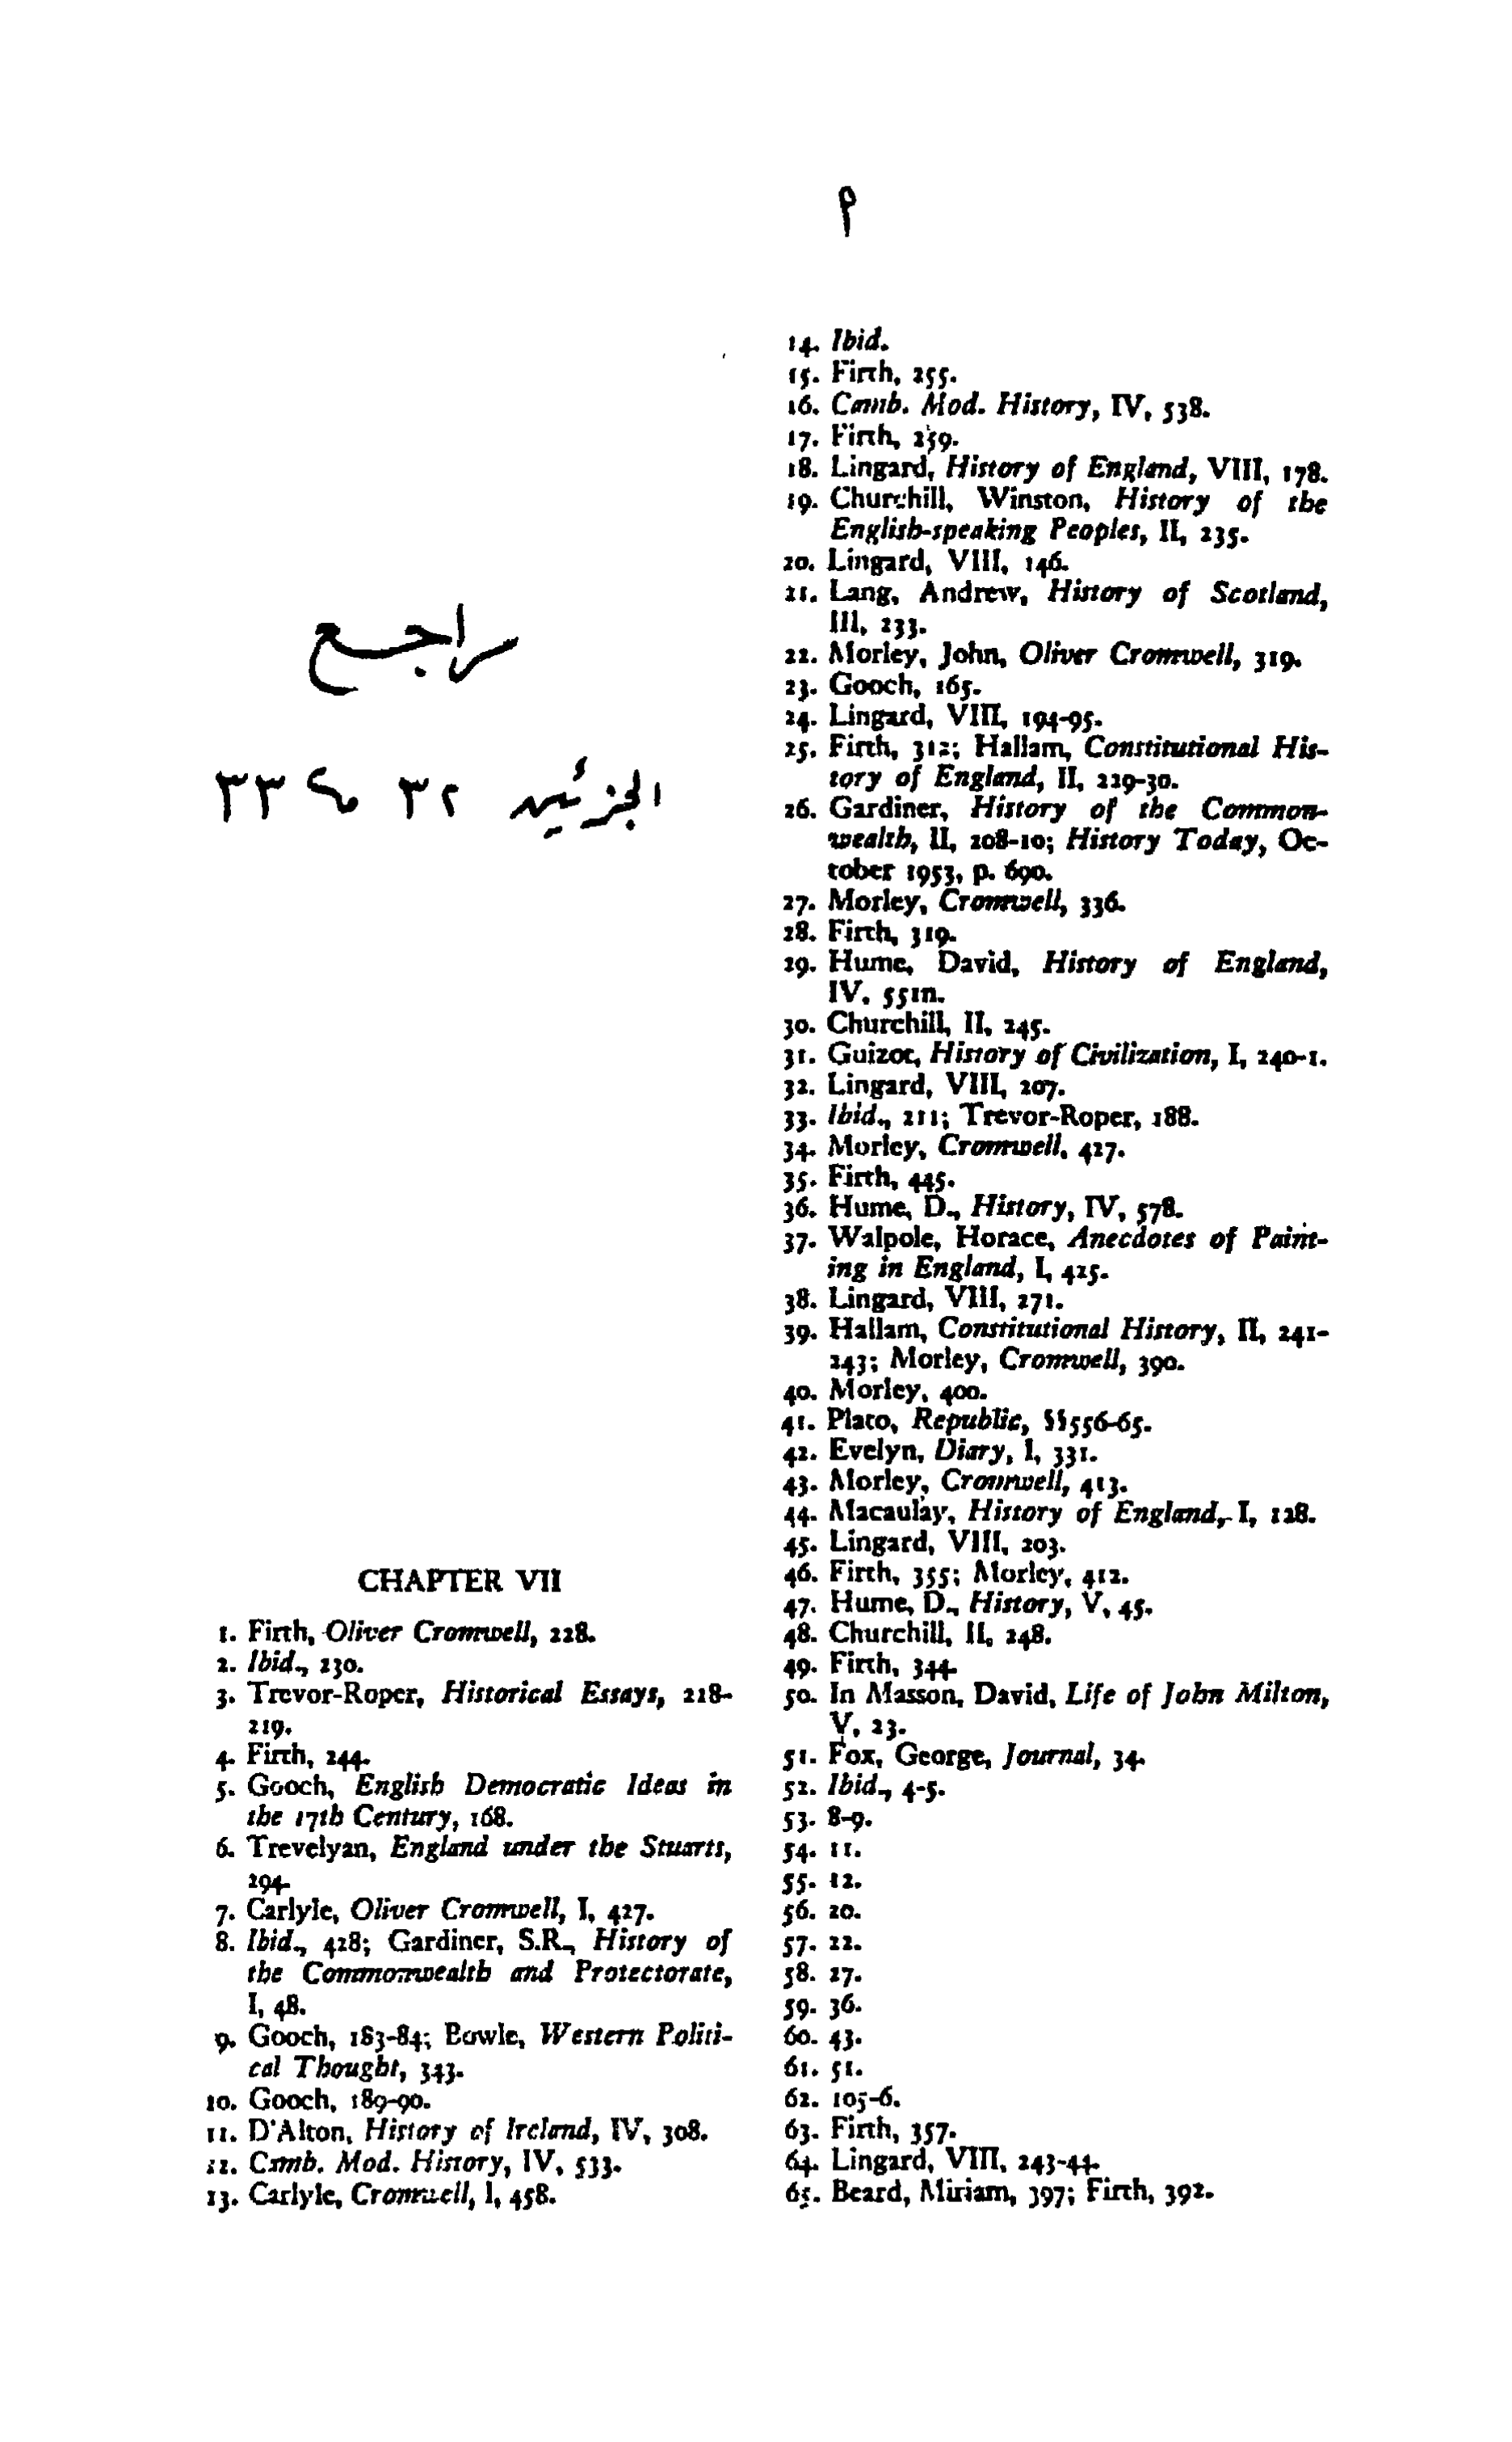 م
مراجع
الجزئين ٣٢ و ٣٣
CHAPTER VII
1. Firth, Oliver Cromwell, 228.
2. Ibid., 230.
3. Trevor-Roper, Historical Essays, 218-
219.
4. Firth, 244.
5. Gooch, English Democratic Ideas in
the 17th Century, 168.
6. Trevelyan, England under the Stuarts,
294.
7. Carlyle, Oliver Cromwell, I, 427.
8. Ibid., 428; Gardiner, S.R., History of
the Commonwealth and Protectorate,
I, 48.
9. Gooch, 183-84; Bowle, Western Politi-
cal Thought, 343.
10. Gooch, 189-90.
11. D'Alton, History of Ireland, IV, 308.
12. Camb. Mod. History, IV, 533.
13. Carlyle, Cromwell, I, 458.
14. Ibid.
15. Firth, 255.
16. Camb. Mod. History, IV, 538.
17. Firth, 259.
18. Lingard, History of England, VIII, 178.
19. Churchill, Winston, History of the
English-speaking Peoples, II, 235.
20. Lingard, VIII, 146.
21. Lang, Andrew, History of Scotland,
III, 233.
22. Morley, John, Oliver Cromwell, 319.
23. Gooch, 165.
24. Lingard, VIII, 194-95.
25. Firth, 312; Hallam, Constitutional His-
tory of England, II, 229-30.
26. Gardiner, History of the Common-
wealth, II, 208-10; History Today, Oc-
tober 1953, p. 690.
27. Morley, Cromwell, 336.
28. Firth, 319.
29. Hume, David, History of England,
IV, 551n.
30. Churchill, II, 245.
31. Guizot, History of Civilization, I, 240-1.
32. Lingard, VIII, 207.
33. Ibid., 211; Trevor-Roper, 188.
34. Morley, Cromwell, 427.
35. Firth, 445.
36. Hume, D., History, IV, 578.
37. Walpole, Horace, Anecdotes of Paint-
ing in England, I, 425.
38. Lingard, VIII, 271.
39. Hallam, Constitutional History, II, 241-
243; Morley, Cromwell, 390.
40. Morley, 400.
41. Plato, Republic, §§556-65.
42. Evelyn, Diary, I, 331.
43. Morley, Cromwell, 413.
44. Macaulay, History of England, I, 128.
45. Lingard, VIII, 203.
46. Firth, 355; Morley, 412.
47. Hume, D., History, V, 45.
48. Churchill, II, 248.
49. Firth, 344.
50. In Masson, David, Life of John Milton,
V, 23.
51. Fox, George, Journal, 34.
52. Ibid., 4-5.
53. 8-9.
54. 11.
55. 12.
56. 20.
57. 22.
58. 27.
59. 36.
60. 43.
61. 51.
62. 105-6.
63. Firth, 357.
64. Lingard, VIII, 243-44.
65. Beard, Miriam, 397; Firth, 392.